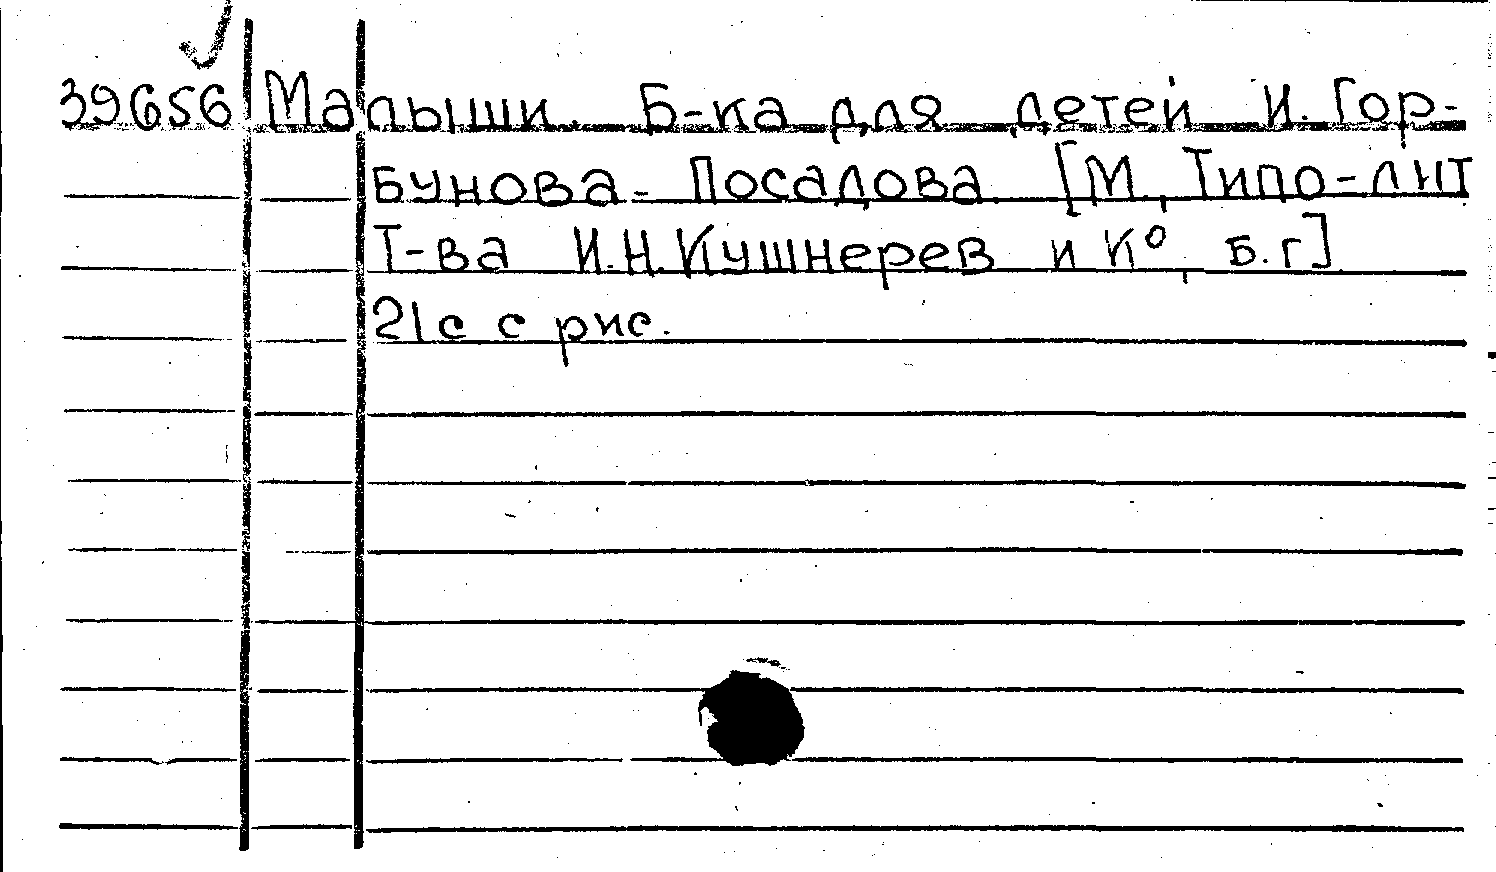 39656 Малыши. Б-ка для детей И. Гор-
бунова-Посадова. [М., Типо-лит
Т-ва И.Н.Кушнерев и К°, б.г]
21с с рис.